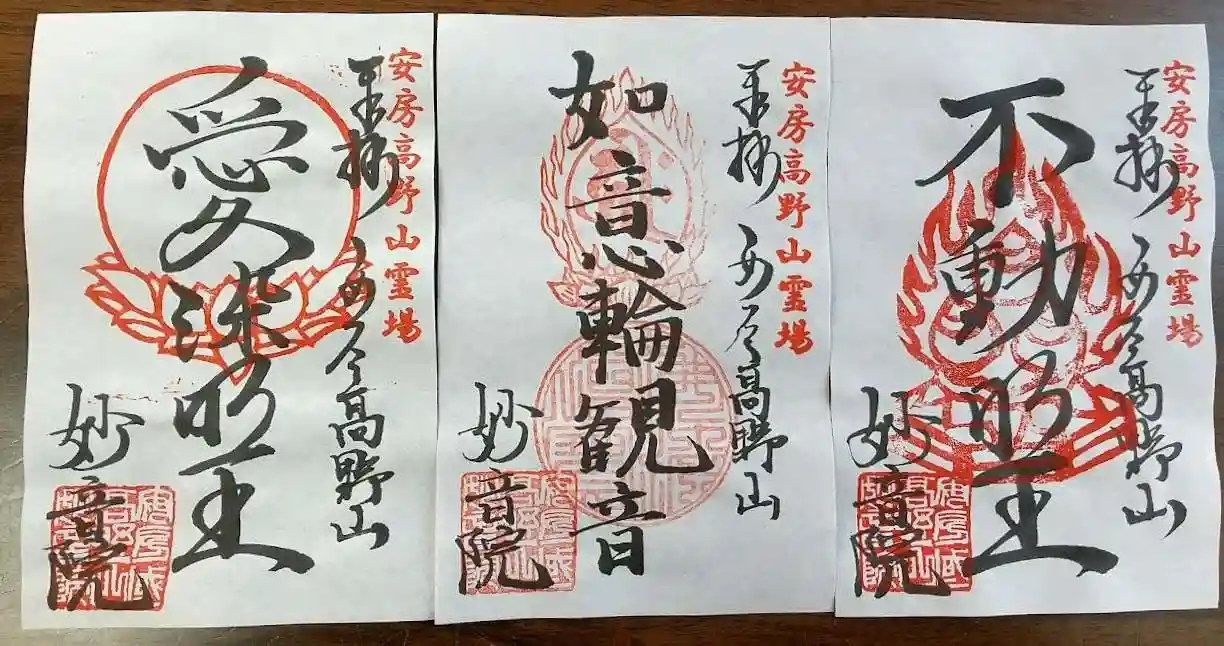 安房高野山霊場
奉拝 安房高野山
不動明王
妙音院
安房高野山霊場
奉拝 安房高野山
如意輪観音
妙音院
安房高野山霊場
奉拝 安房高野山
愛染明王
妙音院